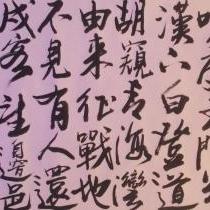 漢下白登道
胡窺青海灣
由来征戰地
不見有人還
戍客望邊邑